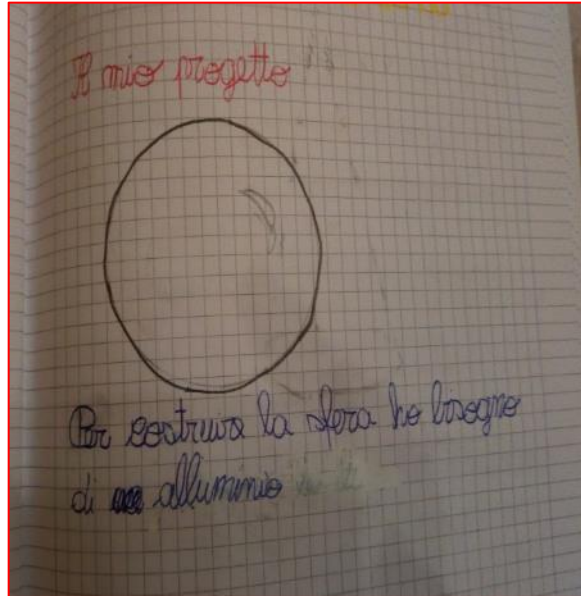 Il mio progetto
Per costruire la sfera ho bisogno
di alluminio